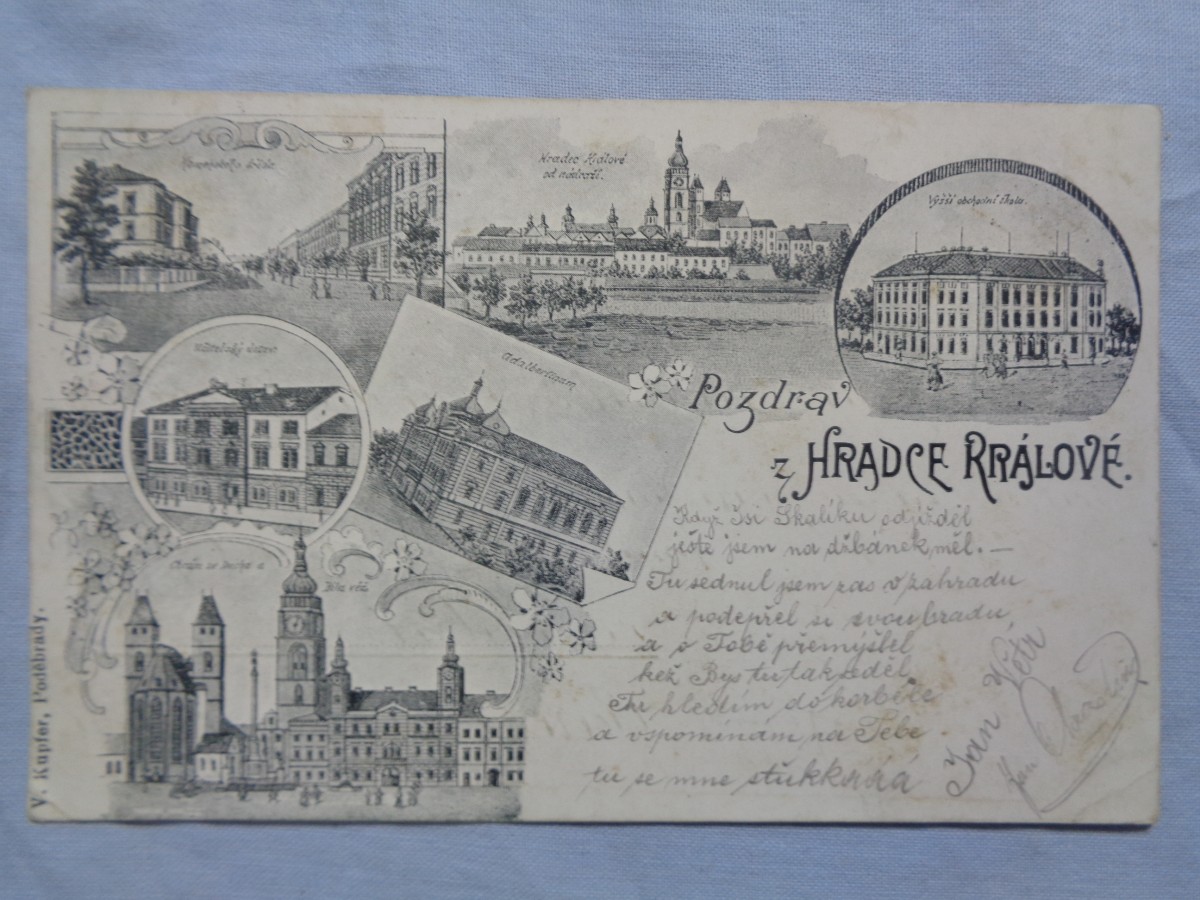 Hradec Králové
od nádraží.
Vyšší obchodní škola.
Učitelský ústav
Adalbertinum
Chrám sv. Ducha a
Bílá věž
Pozdrav
z HRADCE KRÁLOVÉ.
Když Jsi Skaliku odjížděl
ještě jsem na džbánek měl. —
Tu sednul jsem zas v zahradu
a podepřel si svou bradu,
a o Tobě přemýšlel
kéž Bys tu tak seděl
Tu hledím do korbele
a vspomínám na Tebe
tu se mne
Jan Petr
V. Kupfer, Poděbrady.